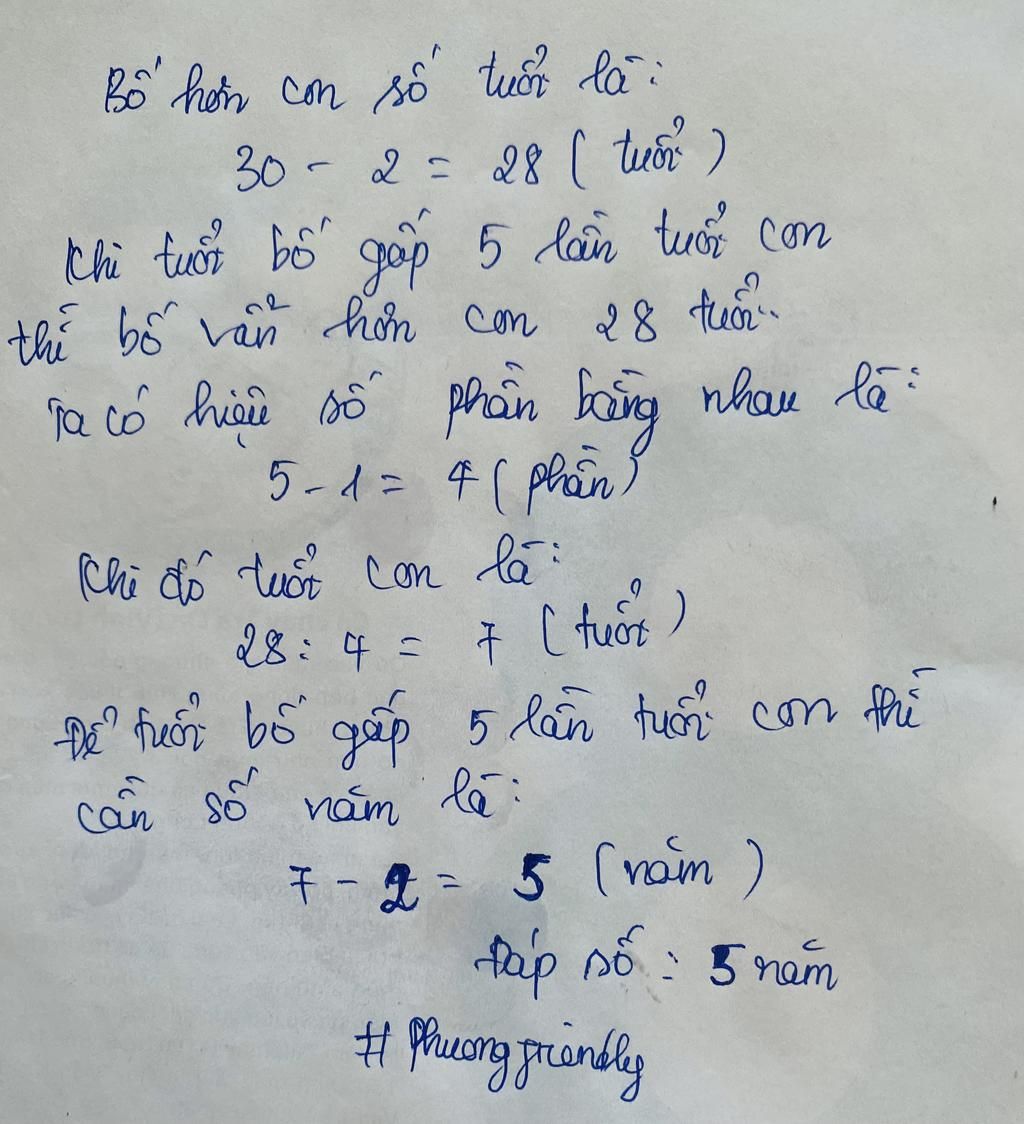 Bố hơn con số tuổi là:
30 - 2 = 28 ( tuổi )
Khi tuổi bố gấp 5 lần tuổi con
thì bố vẫn hơn con 28 tuổi.
Ta có hiệu số phần bằng nhau là:
5 - 1 = 4 ( phần )
Khi đó tuổi con là:
28 : 4 = 7 ( tuổi )
Để tuổi bố gấp 5 lần tuổi con thì
cần số năm là:
7 - 2 = 5 ( năm )
Đáp số : 5 năm
# Phuong friendly